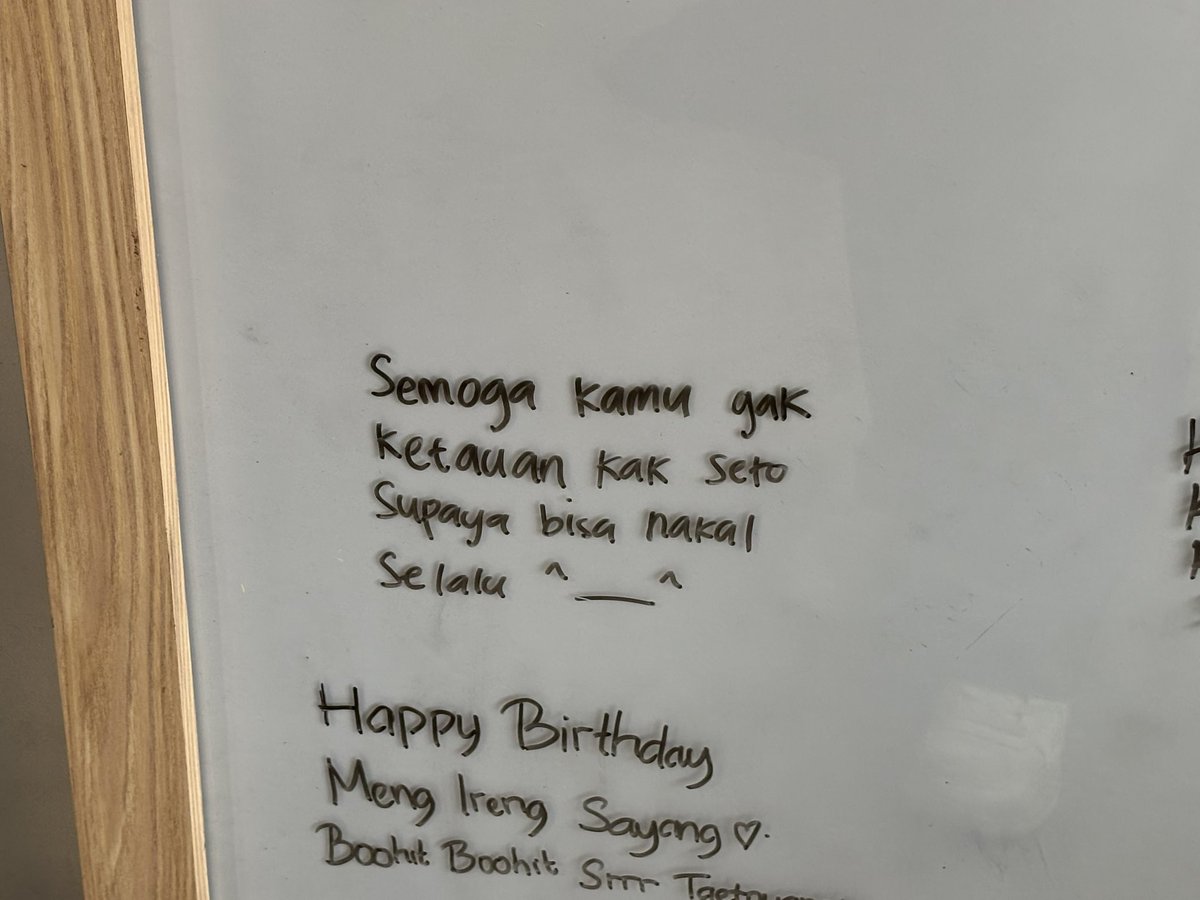 Semoga kamu gak
ketauan kak seto
Supaya bisa nakal
Selalu ^__^
Happy Birthday
Meng Ireng Sayang ♡.
Boohit Boohit Srrr